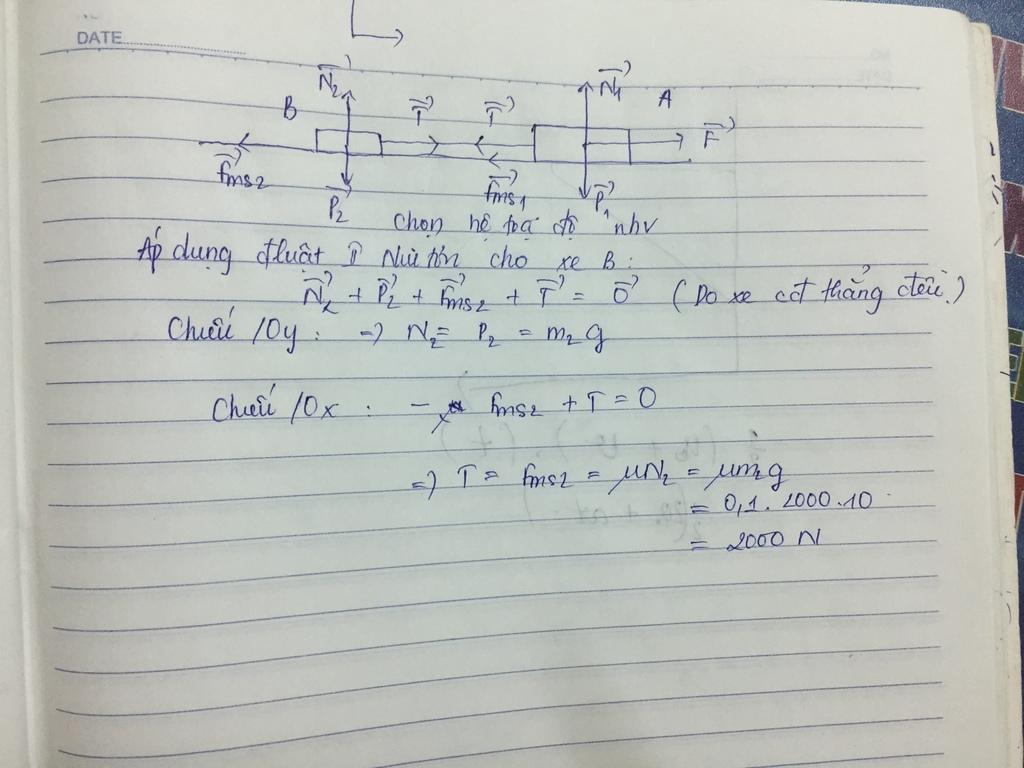 DATE
N₂→ T→ T→ N₁→
B A
fms2→ P₂→ fms1→ P₁→ F→
chọn hệ toạ độ như
Áp dụng định luật II Niu tơn cho xe B:
N₂→ + P₂→ + fms2→ + T→ = 0→ (Do xe cđ thẳng đều.)
Chiếu /Oy: => N₂ = P₂ = m₂g
Chiếu /Ox: - fms2 + T = 0
=> T = fms2 = μN₂ = μm₂g
= 0,1.2000.10.
= 2000 N